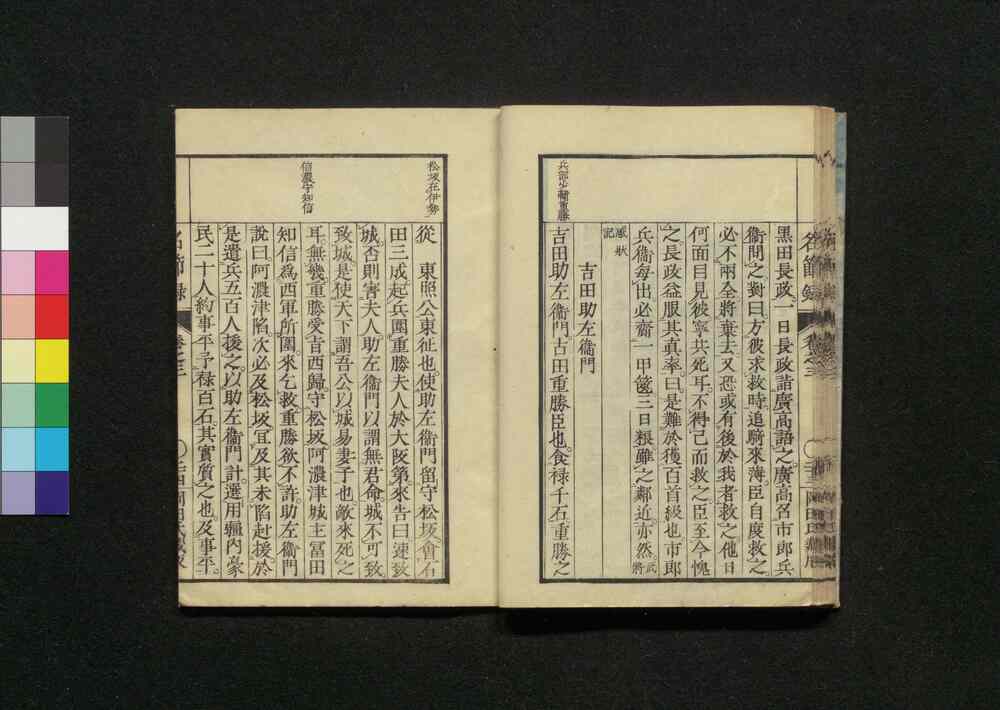 名節録
卷之三
黒田長政一日長政詣廣高語之廣高名市郎兵
衞問之對曰方彼求救時追騎來薄臣自度救之
必不兩全將棄去又恐或有後於我者救之他日
何面目見彼寧共死耳不得已而救之臣至今愧
之長政益服其真率曰是難於獲百首級也市郎
兵衞每出必齋一甲篋三日粮雖之鄰近亦然武將
感狀
記
吉田助左衞門
兵部少輔重勝
吉田助左衞門古田重勝臣也食禄千石重勝之
松坂在伊勢
從 東照公東征也使助左衞門留守松坂會石
田三成起兵圍重勝夫人於大阪第來告曰速致
城否則害夫人助左衞門以謂無君命城不可致
致城是使天下謂吾公以城易妻子也敵來死之
信濃守知信
耳無幾重勝愛吉西歸守松坂阿濃津城主冨田
知信為西軍所圍來乞救重勝欲不許助左衞門
說曰阿濃津陷次必及松坂宜及其未陷赴援於
是遣兵五百人援之以助左衞門計選用疆內豪
民二十人約事平予禄百石其實質之也及事平
名節録
卷之三